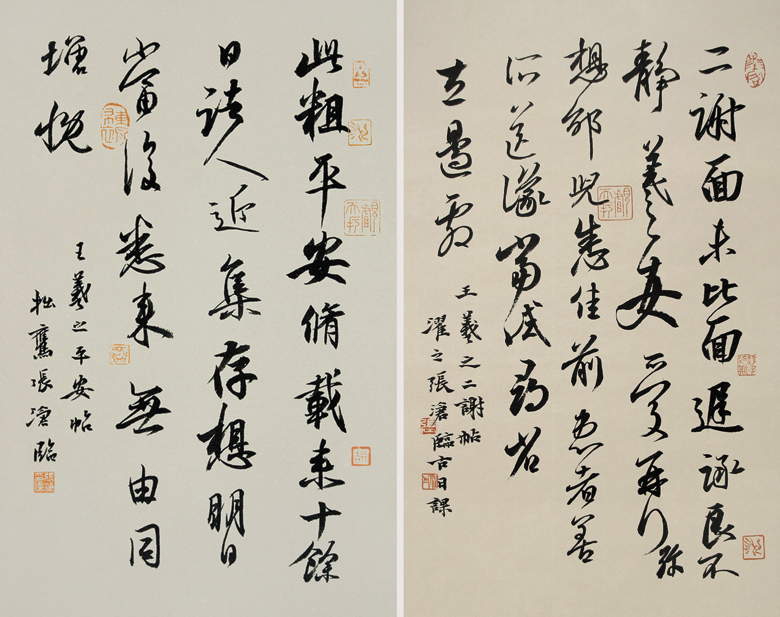 二謝面未比面遲詠良不
靜羲之女愛再拜
想邰兒悉佳前患者善
所送議當試尋省
左邊劇
王羲之二謝帖
濯之張滄臨古日課
此粗平安脩載來十餘
日諸人近集存想明日
當復悉來無由同
增慨
王羲之平安帖
張滄臨